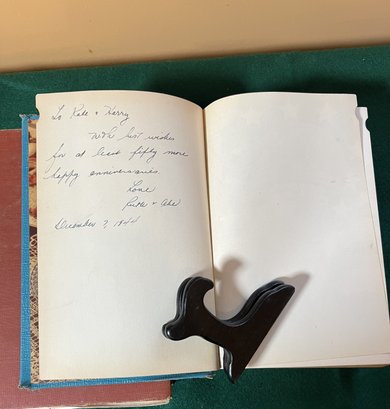 To Kate + Harry
With best wishes
for at least fifty more
happy anniversaries.
Love
Ruth + Abe
December 7, 1944